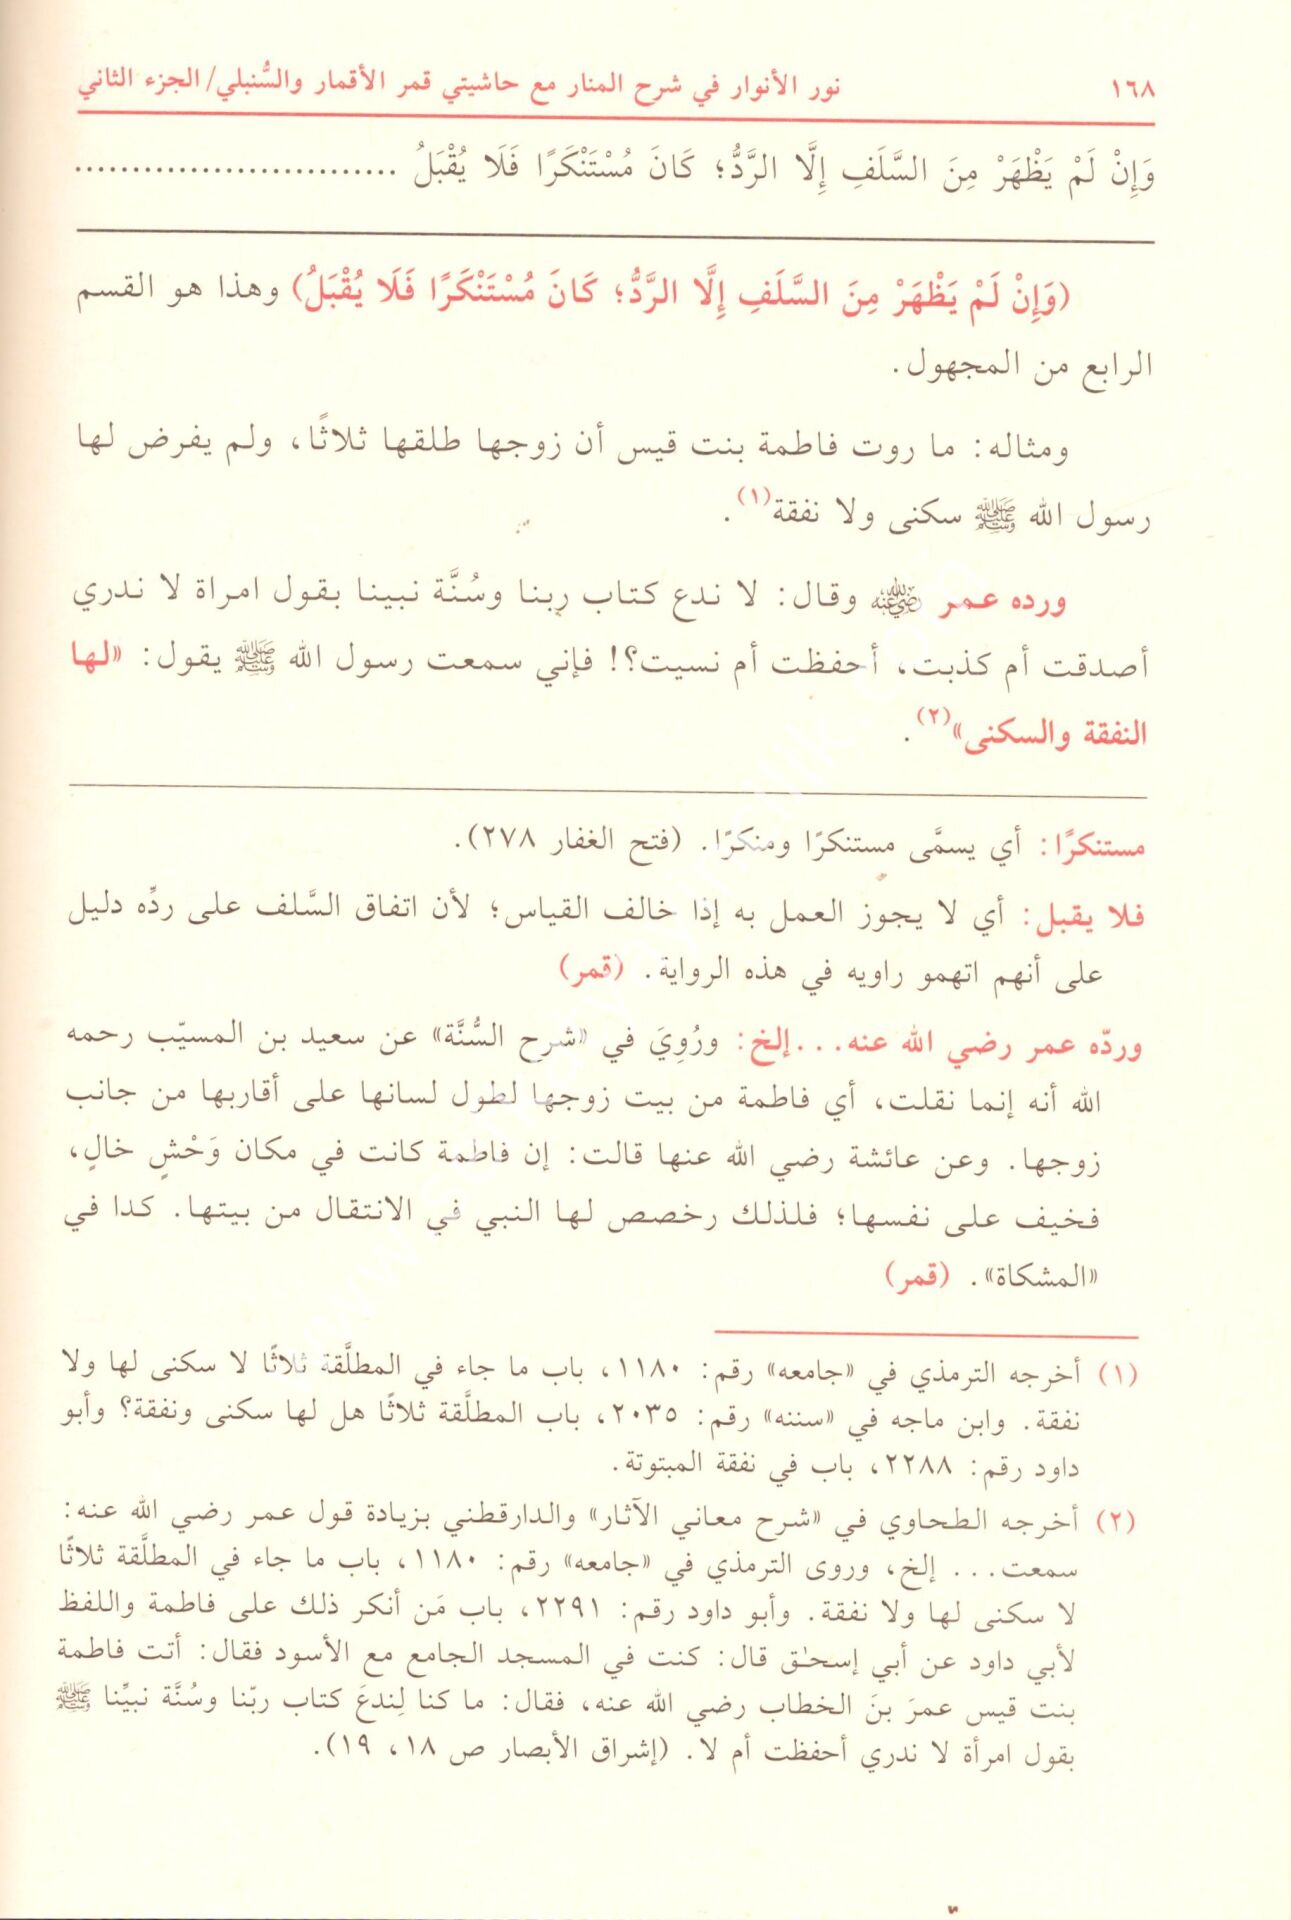 ١٦٨ نور الأنوار في شرح المنار مع حاشيتي قمر الأقمار والسُّنبلي/الجزء الثاني
وَإِنْ لَمْ يَظْهَرْ مِنَ السَّلَفِ إِلَّا الرَّدُّ؛ كَانَ مُسْتَنْكَرًا فَلَا يُقْبَلُ ............................
(وَإِنْ لَمْ يَظْهَرْ مِنَ السَّلَفِ إِلَّا الرَّدُّ؛ كَانَ مُسْتَنْكَرًا فَلَا يُقْبَلُ) وهذا هو القسم
الرابع من المجهول.
ومثاله: ما روت فاطمة بنت قيس أن زوجها طلقها ثلاثًا، ولم يفرض لها
رسول الله ﷺ سكنى ولا نفقة(١).
ورده عمر رضي الله عنه وقال: لا ندع كتاب ربنا وسُنَّة نبينا بقول امراة لا ندري
أصدقت أم كذبت، أحفظت أم نسيت؟! فإني سمعت رسول الله ﷺ يقول: «لها
النفقة والسكنى»(٢).
مستنكرًا: أي يسمَّى مستنكرًا ومنكرًا. (فتح الغفار ٢٧٨).
فلا يقبل: أي لا يجوز العمل به إذا خالف القياس؛ لأن اتفاق السَّلف على ردِّه دليل
على أنهم اتهمو راويه في هذه الرواية. (قمر)
وردّه عمر رضي الله عنه...إلخ: ورُوِيَ في «شرح السُّنَّة» عن سعيد بن المسيّب رحمه
الله أنه إنما نقلت، أي فاطمة من بيت زوجها لطول لسانها على أقاربها من جانب
زوجها. وعن عائشة رضي الله عنها قالت: إن فاطمة كانت في مكان وَحْشٍ خالٍ،
فخيف على نفسها؛ فلذلك رخصص لها النبي في الانتقال من بيتها. كدا في
«المشكاة». (قمر)
(١) أخرجه الترمذي في «جامعه» رقم: ١١٨٠، باب ما جاء في المطلَّقة ثلاثًا لا سكنى لها ولا
نفقة. وابن ماجه في «سننه» رقم: ٢٠٣٥، باب المطلَّقة ثلاثًا هل لها سكنى ونفقة؟ وأبو
داود رقم: ٢٢٨٨، باب في نفقة المبتوتة.
(٢) أخرجه الطحاوي في «شرح معاني الآثار» والدارقطني بزيادة قول عمر رضي الله عنه:
سمعت... إلخ، وروى الترمذي في «جامعه» رقم: ١١٨٠، باب ما جاء في المطلَّقة ثلاثًا
لا سكنى لها ولا نفقة. وأبو داود رقم: ٢٢٩١، باب مَن أنكر ذلك على فاطمة واللفظ
لأبي داود عن أبي إسحٰق قال: كنت في المسجد الجامع مع الأسود فقال: أتت فاطمة
بنت قيس عمرَ بنَ الخطاب رضي الله عنه، فقال: ما كنا لِندعَ كتاب ربّنا وسُنَّة نبيِّنا ﷺ
بقول امرأة لا ندري أحفظت أم لا. (إشراق الأبصار ص ١٨، ١٩).